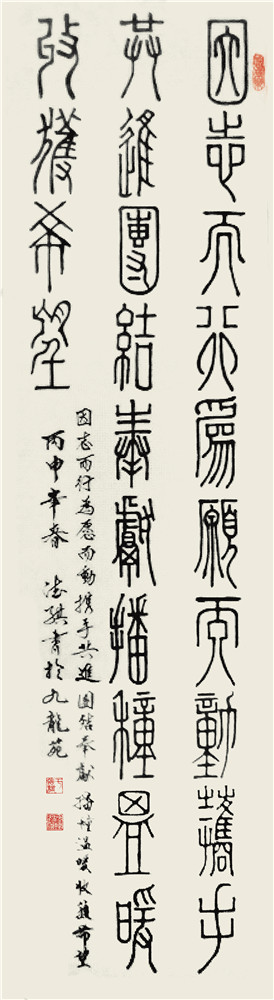 因志而行為願而動攜手
共進團結奉獻播種昷暖
收穫希望
因志而行為愿而動携手共進團結奉獻播種温暖收獲希望
丙申年春 德書於九龍苑